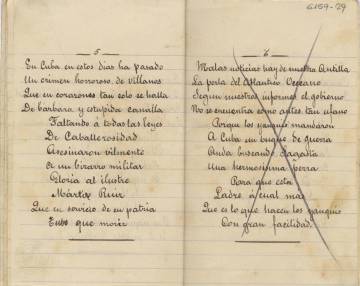 6159-29
5
En Cuba en estos dias ha pasado
Un crimen horroroso, de villanos
Que en corazones tan solo se halla
De barbara y estupida canalla
Faltando á todas las leyes
De Caballerosidad
Asesinaron vilmente
A un bizarro militar
Gloria al ilustre
Martir Ruiz
Que en servicio de su patria
Tubo que morir
6
Malas noticias hay de nuestra Antilla
La perla del Atlantico Occeano
Segun nuestros informes el gobierno
No se encuentra como antes, tan ufano
Porque los yanquis mandaron
A Cuba un buque de guerra
Anda buscando
Una hermosisima perra
Para que esta
Ladre á cual mas
Que es lo que hacen los yanquis
Con gran facilidad.